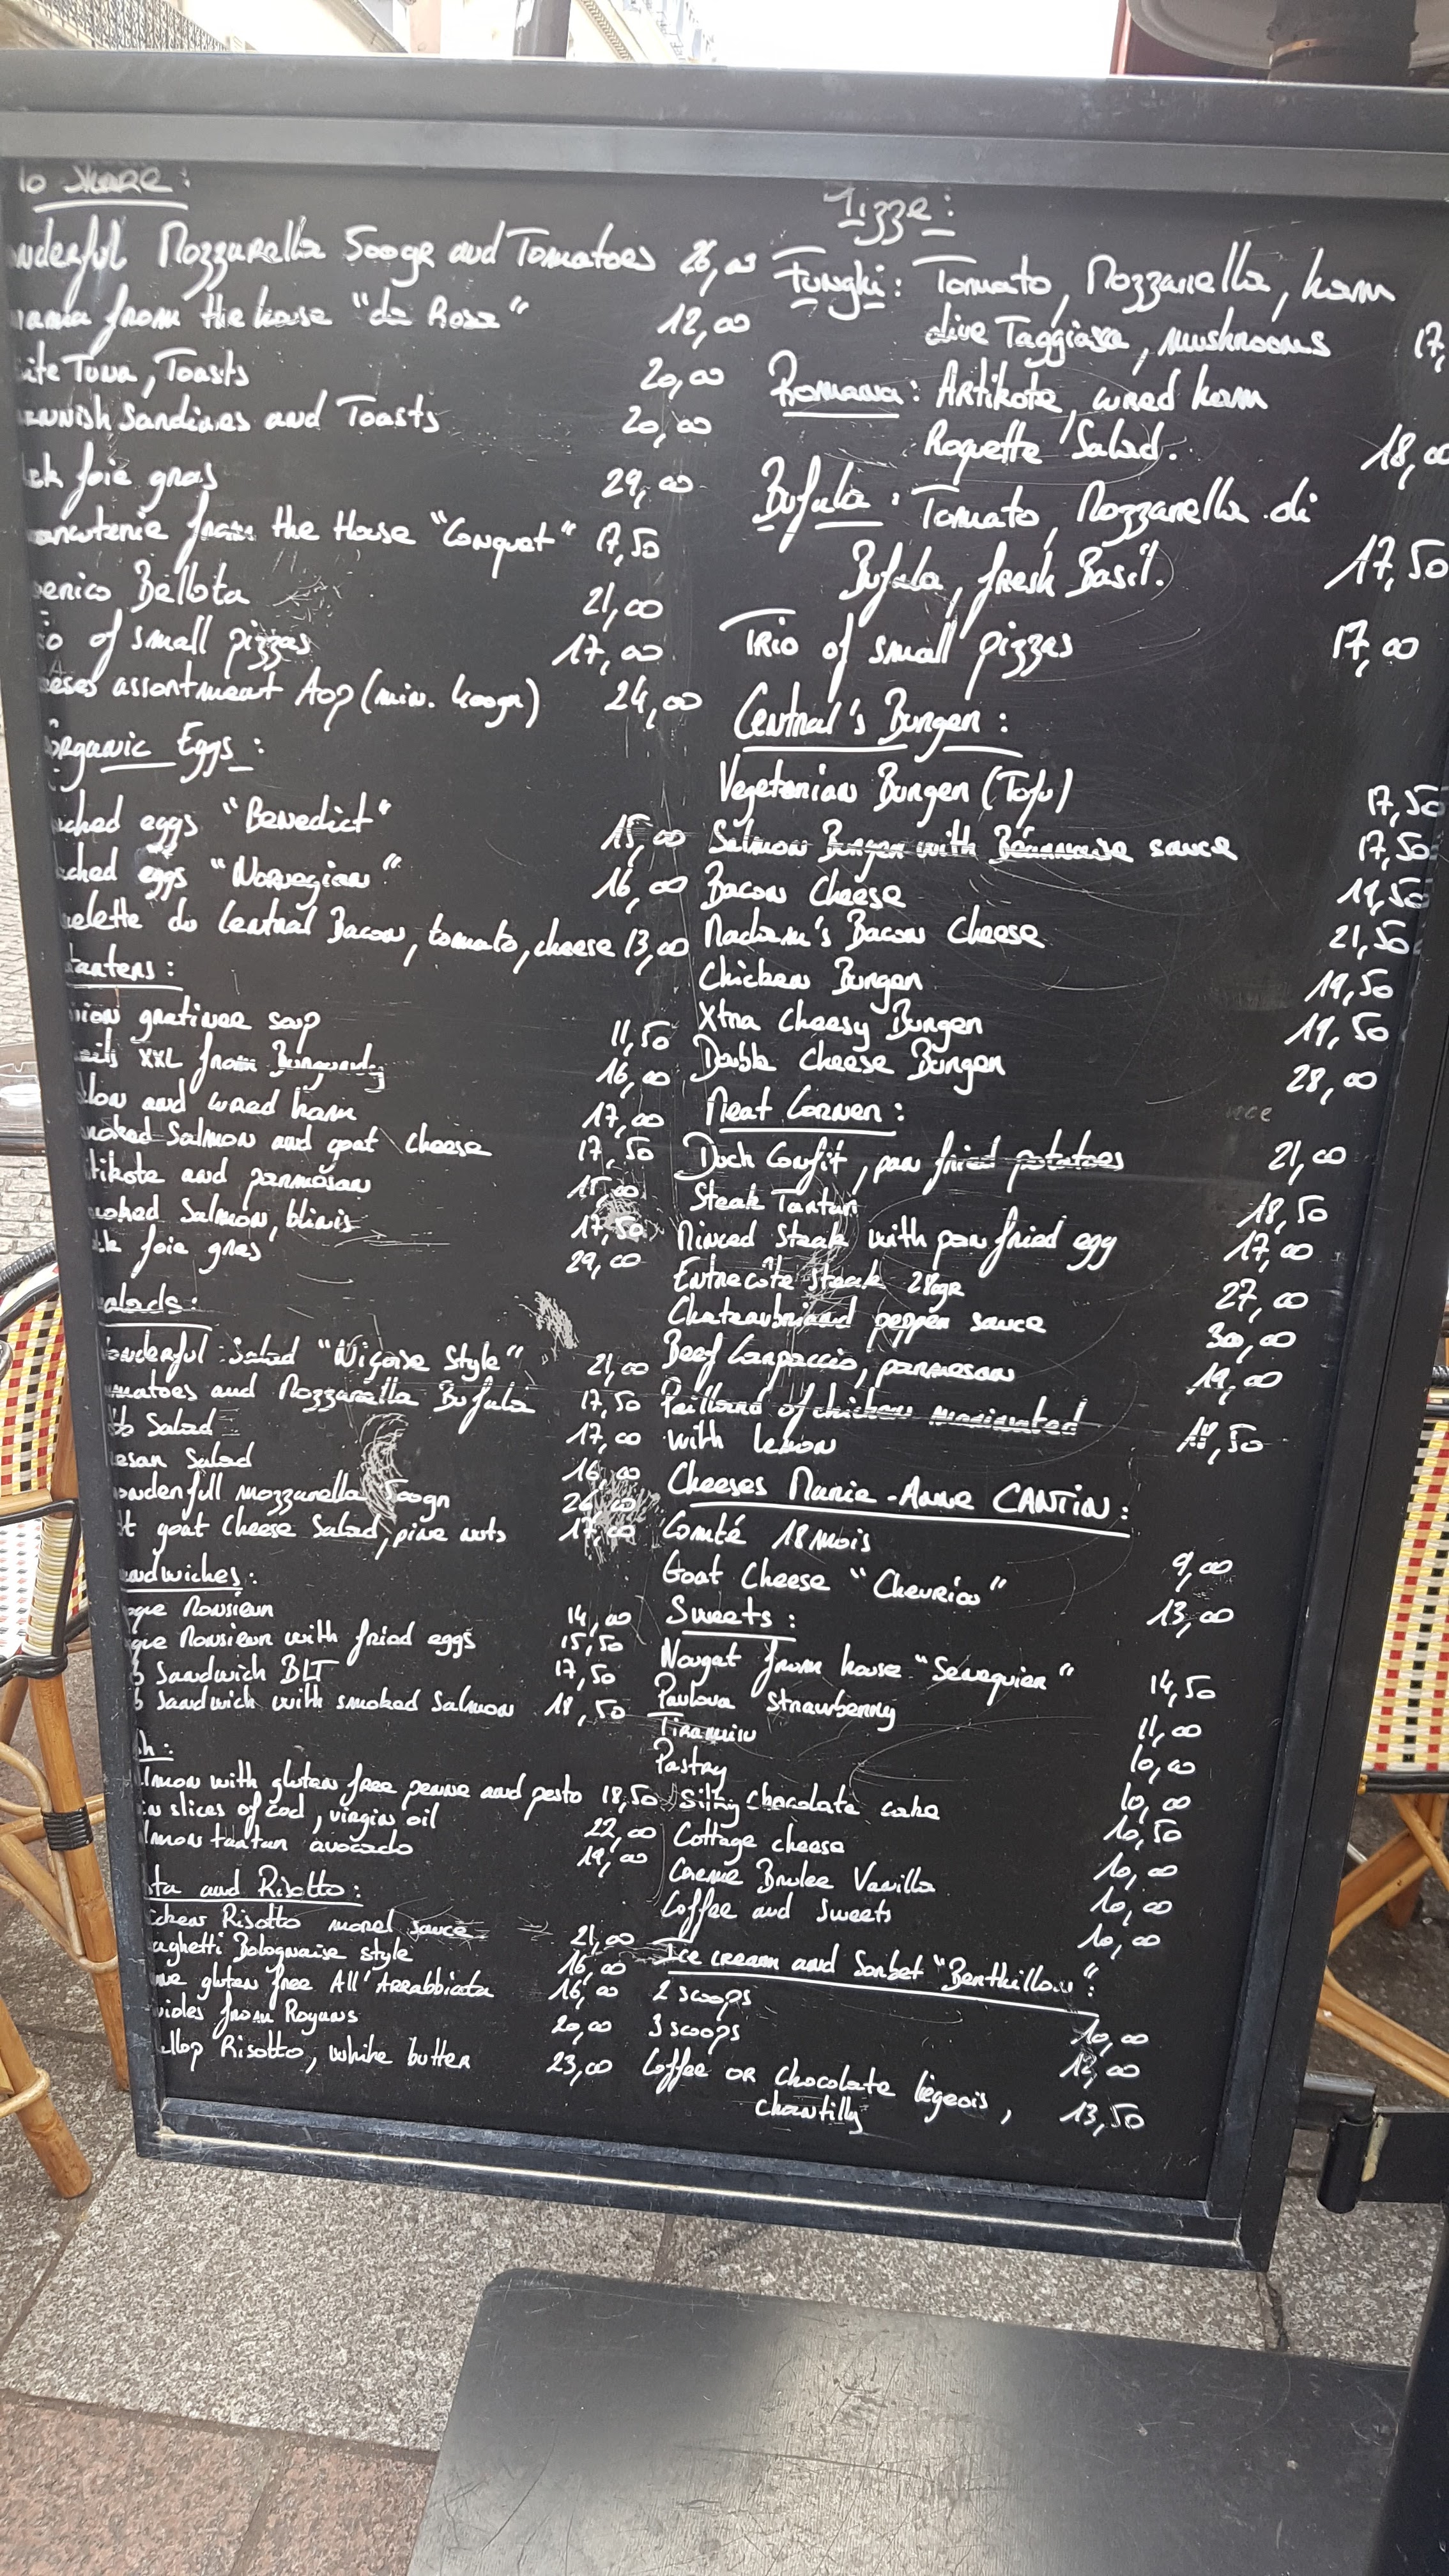 To Share:
nderful Mozzarella 500gr and Tomatoes 26,00
rama from the house "da Rosa" 12,00
ite Tuna, Toasts 20,00
ennish Sardines and Toasts 20,00
ck foie gras 29,00
arcuterie from the House "Conquet" 17,50
erico Bellota 21,00
io of small pizzas 17,00
eeses assortment Aop (min. 400gr) 24,00
organic Eggs:
ched eggs "Benedict" 15,00
ached eggs "Norvegian" 16,00
elette du Central Bacon, tomato, cheese 13,00
tarters:
nion gratinee soup 11,50
ails XXL from Burgundy 16,00
elon and cured ham 17,00
moked Salmon and goat cheese 17,50
tikote and parmesan 15,00
moked Salmon, blinis 17,50
ck foie gras 29,00
alads:
onderful Salad "Niçoise Style" 21,00
omatoes and Mozzarella Bufula 17,50
bb Salad 17,00
esar Salad 16,00
onderfull mozzarella 500gr 26,00
t goat cheese Salad, pine nuts 17,00
andwiches:
que Monsieur 14,00
que Monsieur with fried eggs 15,50
b Sandwich BLT 17,50
b Sandwich with smoked Salmon 18,50
sh:
lmon with gluten free penne and pesto 18,50
in slices of cod, virgin oil 22,00
lmon tartar avocado 19,00
sta and Risotto:
icken Risotto morel sauce 21,00
aghetti Bolognaise style 16,00
nne gluten free All'Arrabbiata 16,00
violes from Royans 20,00
allop Risotto, white butter 23,00
Pizze:
Funghi: Tomato, Mozzarella, ham
olive Taggiasa, mushrooms 17,
Romana: Artikote, cured ham
Roquette Salad. 18,00
Bufula: Tomato, Mozzarella di
Bufula, fresh Basil. 17,50
Trio of small pizzas 17,00
Central's Burger:
Vegetarian Burger (Tofu) 17,50
Salmon Burger with Béarnaise sauce 17,50
Bacon Cheese 19,50
Madam's Bacon Cheese 21,50
Chicken Burger 19,50
Xtra Cheesy Burger 19,50
Double Cheese Burger 28,00
Meat Corner:
Duck Confit, pan fried potatoes 21,00
Steak Tartar 18,50
Minced Steak with pan fried egg 17,00
Entrecôte steak 280gr 27,00
Chateaubriand pepper sauce 30,00
Beef Carpaccio, parmesan 19,00
Paillard of chicken marinated
with lemon 18,50
Cheeses Marie-Anne CANTIN:
Comté 18 mois 9,00
Goat Cheese "Chevrion" 13,00
Sweets:
Nougat from house "Senequier" 14,50
Pavlova strawberry 11,00
Tiramisu 10,00
Pastry 10,00
Silky chocolate cake 10,50
Cottage cheese 10,00
Creme Brulee Vanilla 10,00
Coffee and Sweets 10,00
Ice cream and Sorbet "Berthillon":
2 scoops 10,00
3 scoops 12,00
Coffee OR Chocolate liegeois, 13,50
chantilly